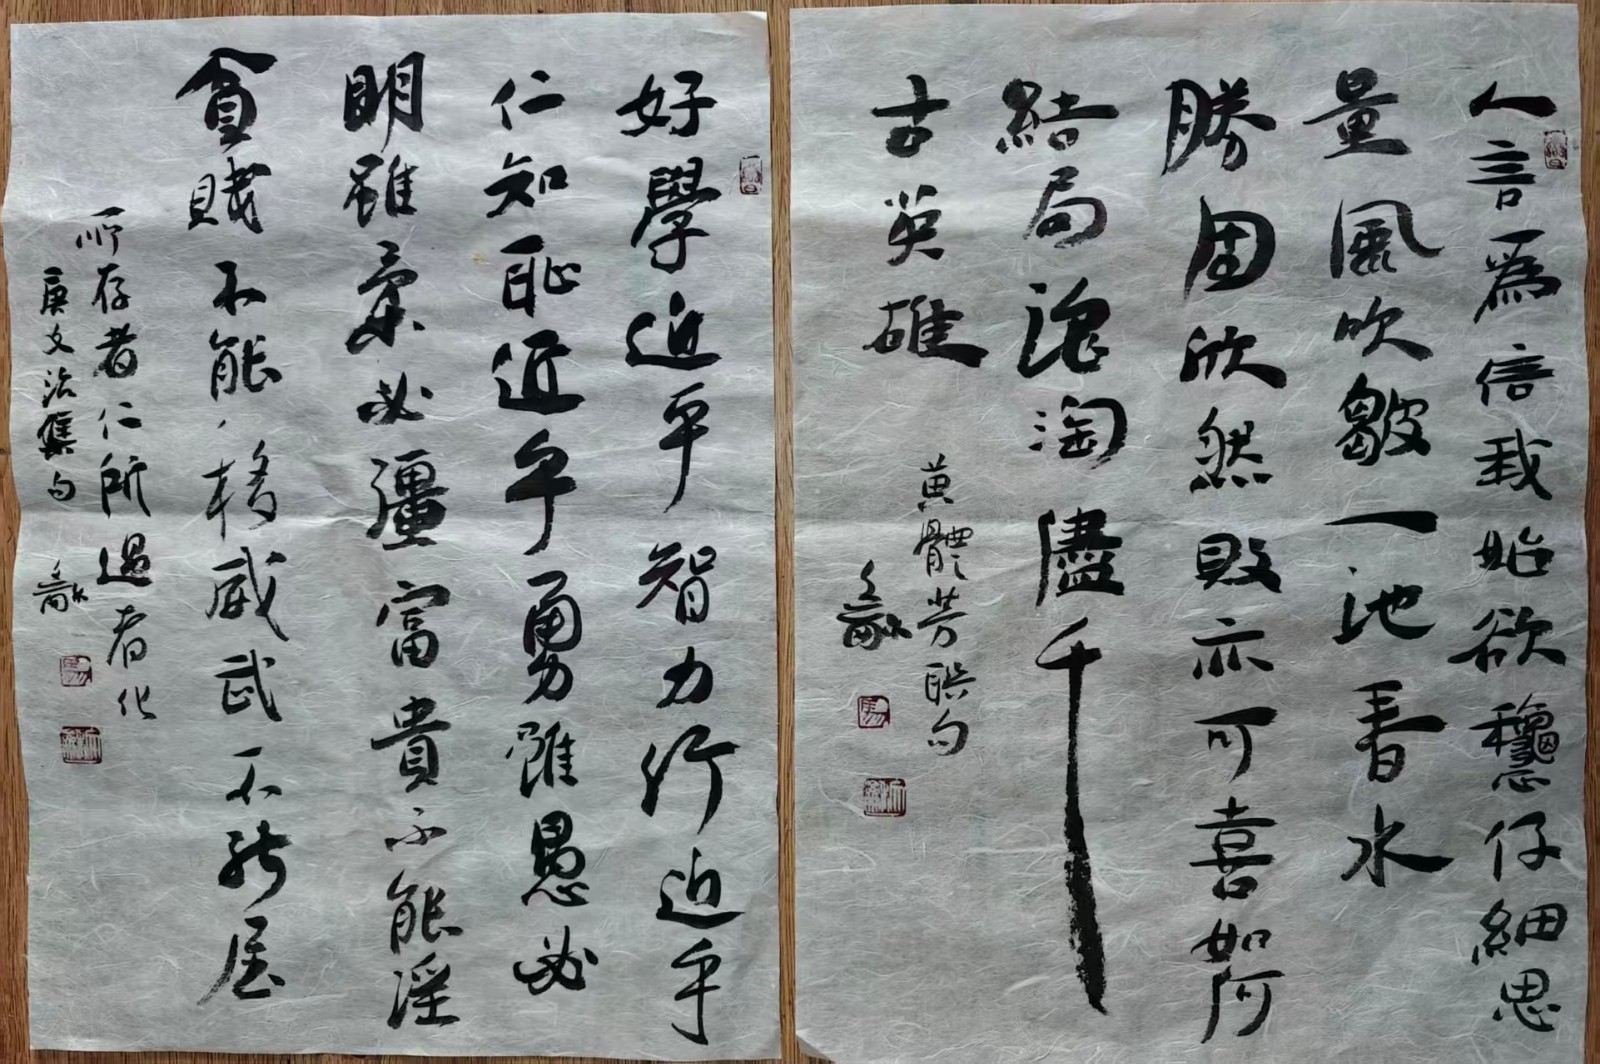 人言為信我始欲愁仔細思
量風吹皺一池春水
勝固欣然敗亦可喜如何
結局浪淘盡千
古英雄
黃體芳聯句
好學近乎智力行近乎
仁知恥近乎勇雖愚必
明雖柔必彊富貴不能淫
貧賤不能移威武不能屈
所存者仁所過者化
唐文治集句